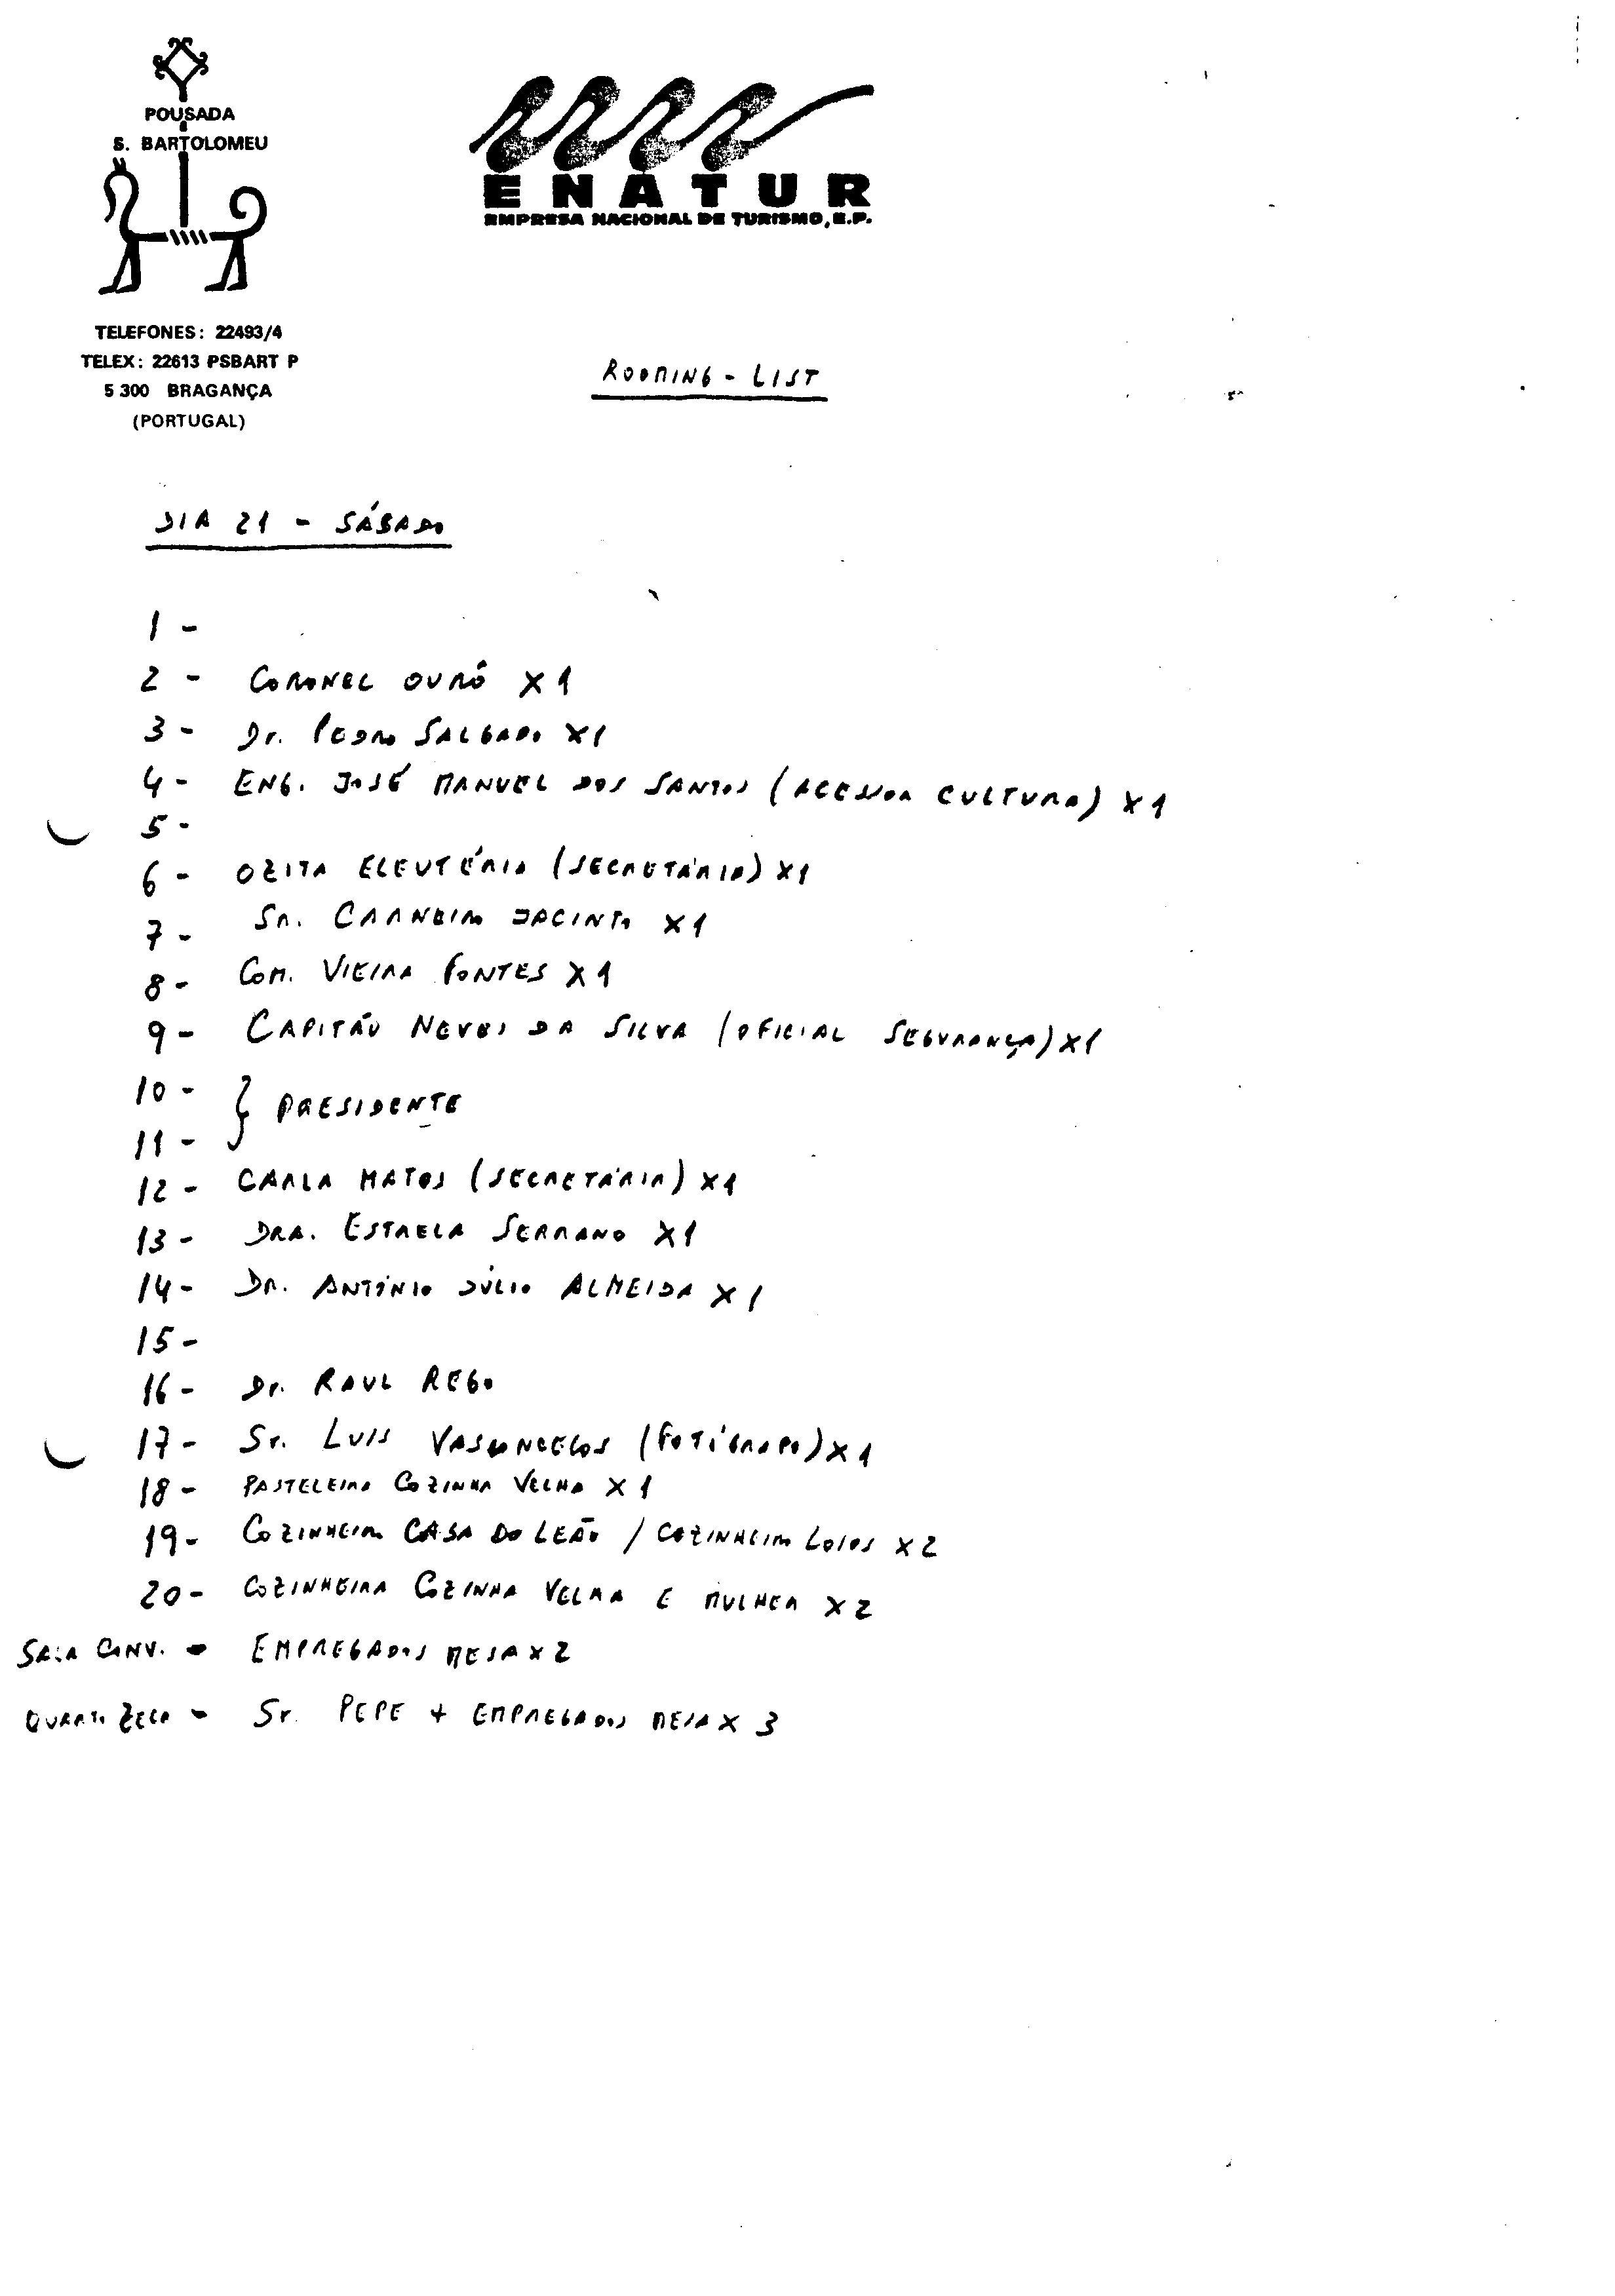 POUSADA
S. BARTOLOMEU
ENATUR
EMPRESA NACIONAL DE TURISMO, E.P.
TELEFONES: 22493/4
TELEX: 22613 PSBART P
5 300 BRAGANÇA
(PORTUGAL)
ROOMING - LIST
DIA 21 - SÁBADO
1 -
2 - CORONEL OURÓ X 1
3 - Dr. PEDRO SALGADO X1
4 - ENG. JOSÉ MANUEL DOS SANTOS (ACESSOR CULTURA) X 1
5 -
6 - OZITA ELEUTÉRIO (SECRETÁRIA) X1
7 - SR. CARNEIRO JACINTO X 1
8 - COM. VIEIRA FONTES X 1
9 - CAPITÃO NEVES DA SILVA (OFICIAL SEGURANÇA) X1
10 - } PRESIDENTE
11 -
12 - CARLA MATOS (SECRETÁRIA) X1
13 - DRA. ESTRELA SERRANO X1
14 - DR. ANTÓNIO JÚLIO ALMEIDA X 1
15 -
16 - Dr. RAUL REGO
17 - Sr. LUIS VASCONCELOS (FOTÓGRAFO) X 1
18 - PASTELEIRO COZINHA VELHA X 1
19 - COZINHEIRO CASA DO LEÃO / COZINHEIRO LOIOS X 2
20 - COZINHEIRA COZINHA VELHA E MULHER X 2
SALA CONV. - EMPREGADOS MESA X 2
QUARTO ZECA - Sr. PEPE + EMPREGADOS MESA X 3